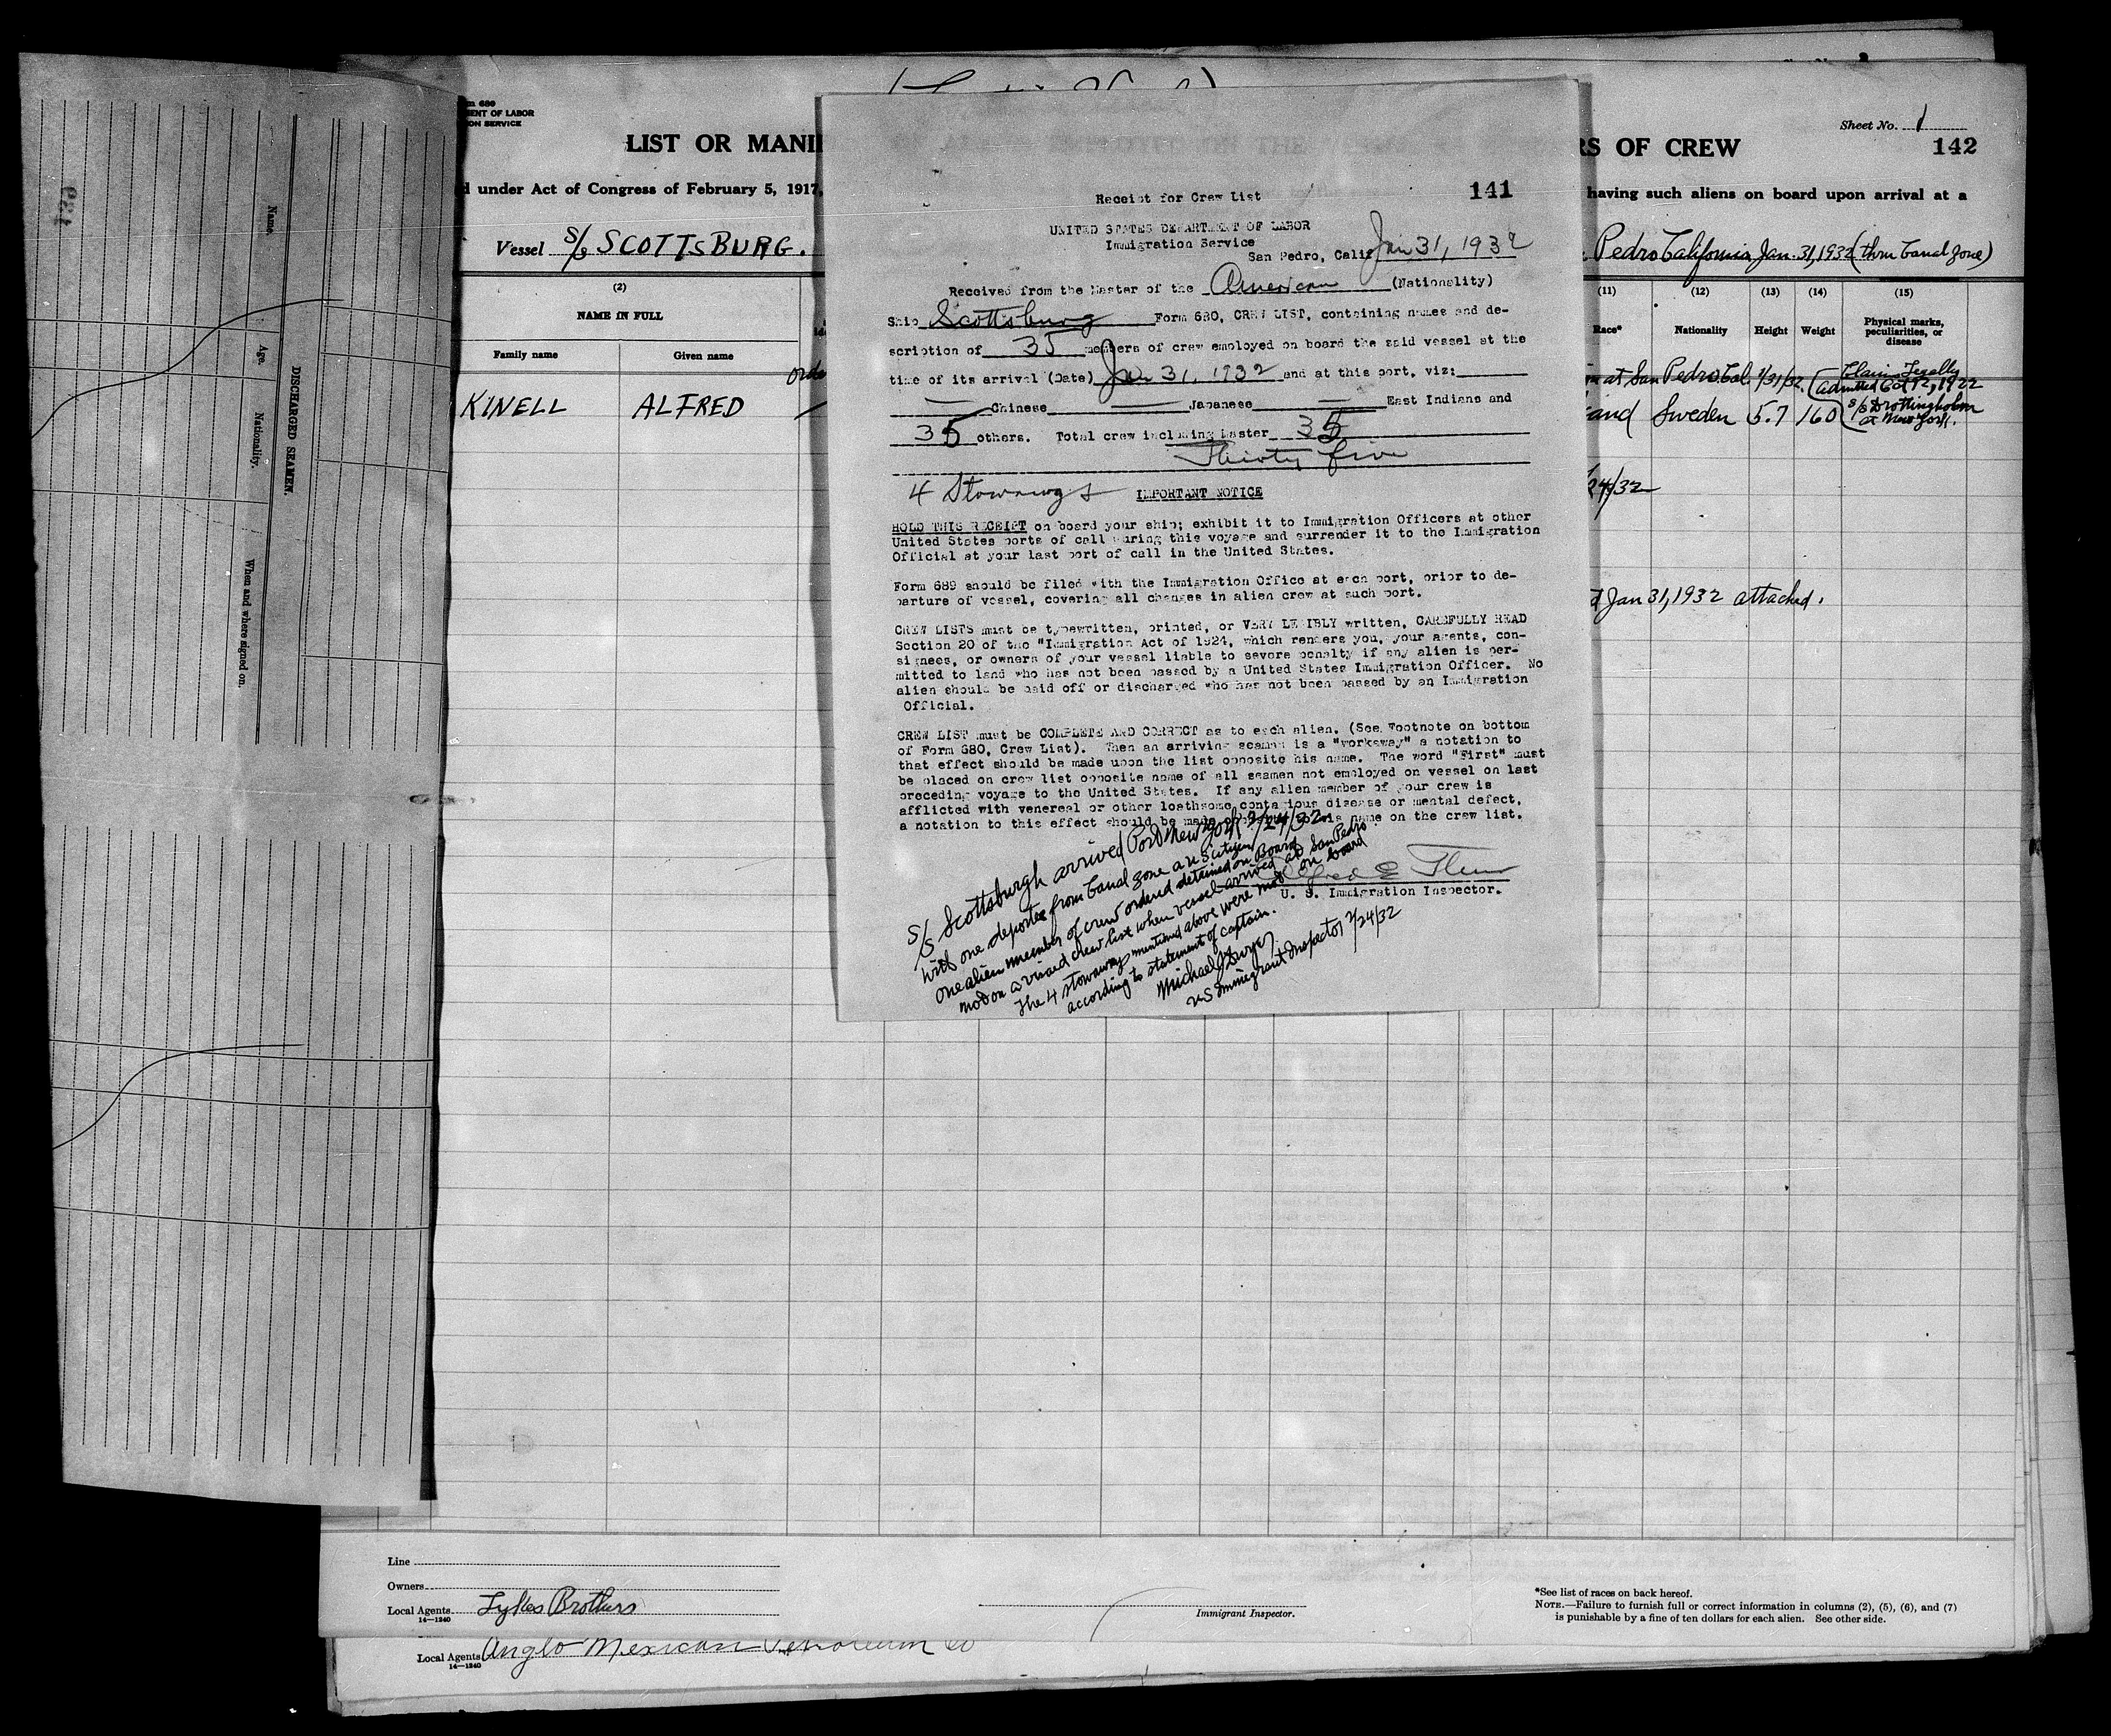 130
DISCHARGED SEAMEN.
Name.
Age.
Nationality.
When and where signed on.
m 680
MENT OF LABOR
ION SERVICE
LIST OR MANI
RS OF CREW
Sheet No. 1
142
d under Act of Congress of February 5, 1917,
having such aliens on board upon arrival at a
Vessel S/S SCOTTSBURG.
Pedro California Jan. 31, 1932 (thru Canal Zone)
(2)
NAME IN FULL
Family name
Given name
(11)
Race*
(12)
Nationality
(13)
Height
(14)
Weight
(15)
Physical marks,
peculiarities, or
disease
at San Pedro Cal. 1/31/32
Claims Legally
admitted Oct 12, 1922
S/S Drottningholm
at New York.
KINELL ALFRED
and Sweden 5.7 160
24/32
d Jan 31, 1932 attached.
141
Receipt for Crew List
UNITED STATES DEPARTMENT OF LABOR
Immigration Service
San Pedro, Calif Jan 31, 1932
Received from the Master of the American (Nationality)
Ship Scottsburg Form 680, CREW LIST, containing names and de-
scription of 35 members of crew employed on board the said vessel at the
time of its arrival (Date) Jan 31, 1932 and at this port, viz:
— Chinese — Japanese — East Indians and
35 others. Total crew including Master 35
Thirty five
4 Stowaways
IMPORTANT NOTICE
HOLD THIS RECEIPT on board your ship; exhibit it to Immigration Officers at other
United States ports of call during this voyage and surrender it to the Immigration
Official at your last port of call in the United States.
Form 689 should be filed with the Immigration Office at each port, prior to de-
parture of vessel, covering all changes in alien crew at such port.
CREW LISTS must be typewritten, printed, or VERY LEGIBLY written, CAREFULLY READ
Section 20 of the "Immigration Act of 1924, which renders you, your agents, con-
signees, or owners of your vessel liable to severe penalty if any alien is per-
mitted to land who has not been passed by a United States Immigration Officer. No
alien should be paid off or discharged who has not been passed by an Immigration
Official.
CREW LIST must be COMPLETE AND CORRECT as to each alien. (See Footnote on bottom
of Form 680, Crew List). When an arriving seaman is a "workaway" a notation to
that effect should be made upon the list opposite his name. The word "First" must
be placed on crew list opposite name of all seamen not employed on vessel on last
preceding voyage to the United States. If any alien member of your crew is
afflicted with venereal or other loathsome contagious disease or mental defect,
a notation to this effect should be made opposite his name on the crew list.
U. S. Immigration Inspector.
S/S Scottsburgh arrived Port New York 2/24/32
with one deportee from Canal Zone a U S citizen
one alien member of crew ordered detained on Board
not on a visaed crew list when vessel arrived at San Pedro
The 4 stowaways mentioned above were not on board
according to statement of captain.
Michael J Dwyer
U S Immigrant Inspector 2/24/32
Line
Owners
Local Agents Lykes Brothers
14—1240
Immigrant Inspector.
*See list of races on back hereof.
NOTE.—Failure to furnish full or correct information in columns (2), (5), (6), and (7)
is punishable by a fine of ten dollars for each alien. See other side.
Local Agents Anglo Mexican Petroleum Co
14—1240